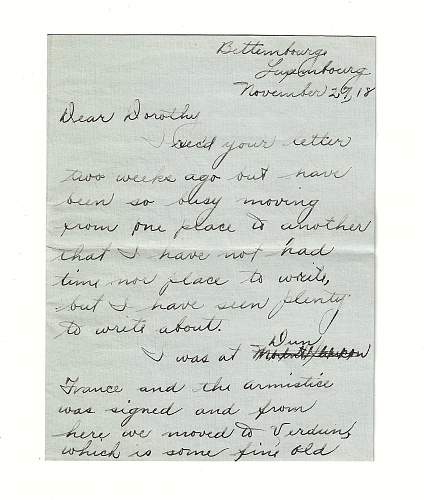 Bettembourg
Luxembourg
November 27, 18
Dear Dorothy
I rec'd your letter
two weeks ago but have
been so busy moving
from one place to another
that I have not had
time nor place to write,
but I have seen plenty
to write about.
Dun
I was at
France and the armistice
was signed and from
here we moved to Verdun,
which is some fine old